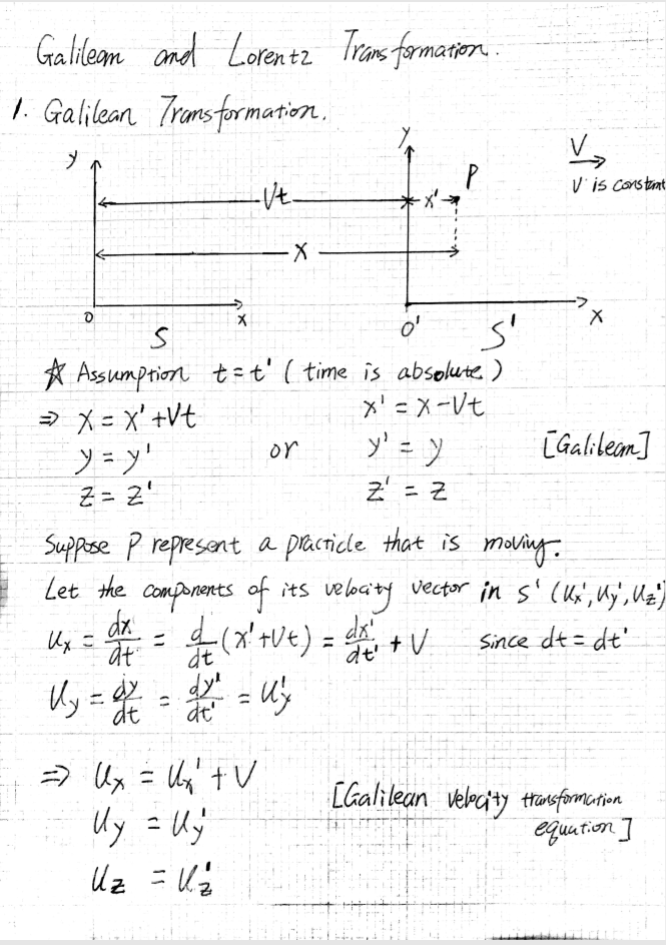 Galilean and Lorentz Transformation.
1. Galilean Transformation.
y
y
V
V is constant
Vt
x'
P
x
0
x
S
0'
S'
x
☆ Assumption t = t' ( time is absolute )
⇒ x = x' + Vt
y = y'
z = z'
or
x' = x - Vt
y' = y
z' = z
[Galilean]
Suppose P represent a practicle that is moving.
Let the components of its velocity vector in S' (Ux', Uy', Uz')
Ux = dx/dt = d/dt (x' + Vt) = dx'/dt' + V since dt = dt'
Uy = dy/dt = dy'/dt' = Uy'
⇒ Ux = Ux' + V
Uy = Uy'
Uz = Uz'
[Galilean velocity transformation
equation]